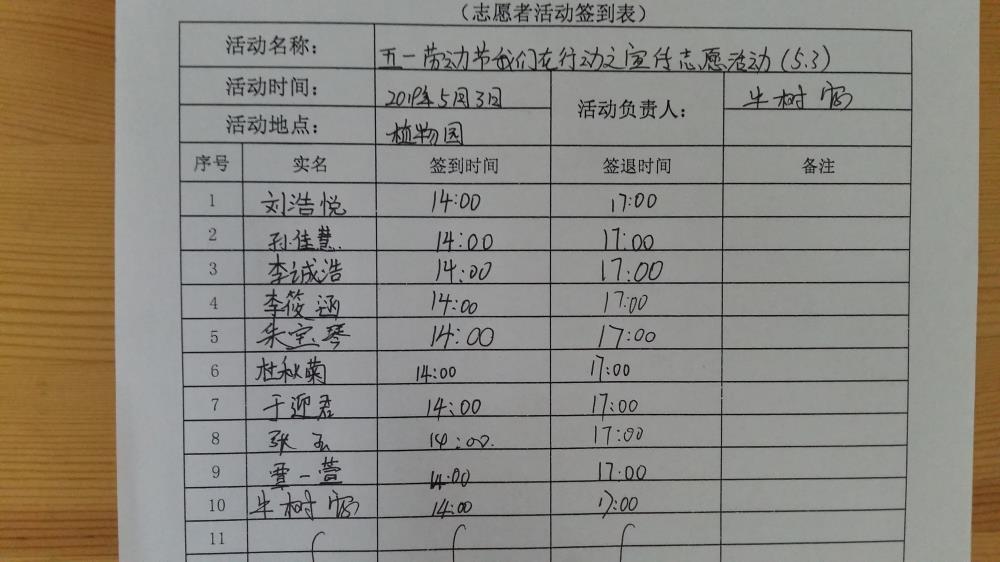 （志愿者活动签到表）
活动名称： 五一劳动节我们在行动之宣传志愿活动(5.3)
活动时间： 2019年5月3日 活动负责人： 牛树
活动地点： 植物园
序号 实名 签到时间 签退时间 备注
1 刘浩悦 14:00 17:00
2 孙佳慧 14:00 17:00
3 李诚浩 14:00 17:00
4 李筱涵 14:00 17:00
5 朱宝琴 14:00 17:00
6 杜秋菊 14:00 17:00
7 于迎君 14:00 17:00
8 张玉 14:00 17:00
9 一萱 14:00 17:00
10 牛树 14:00 17:00
11